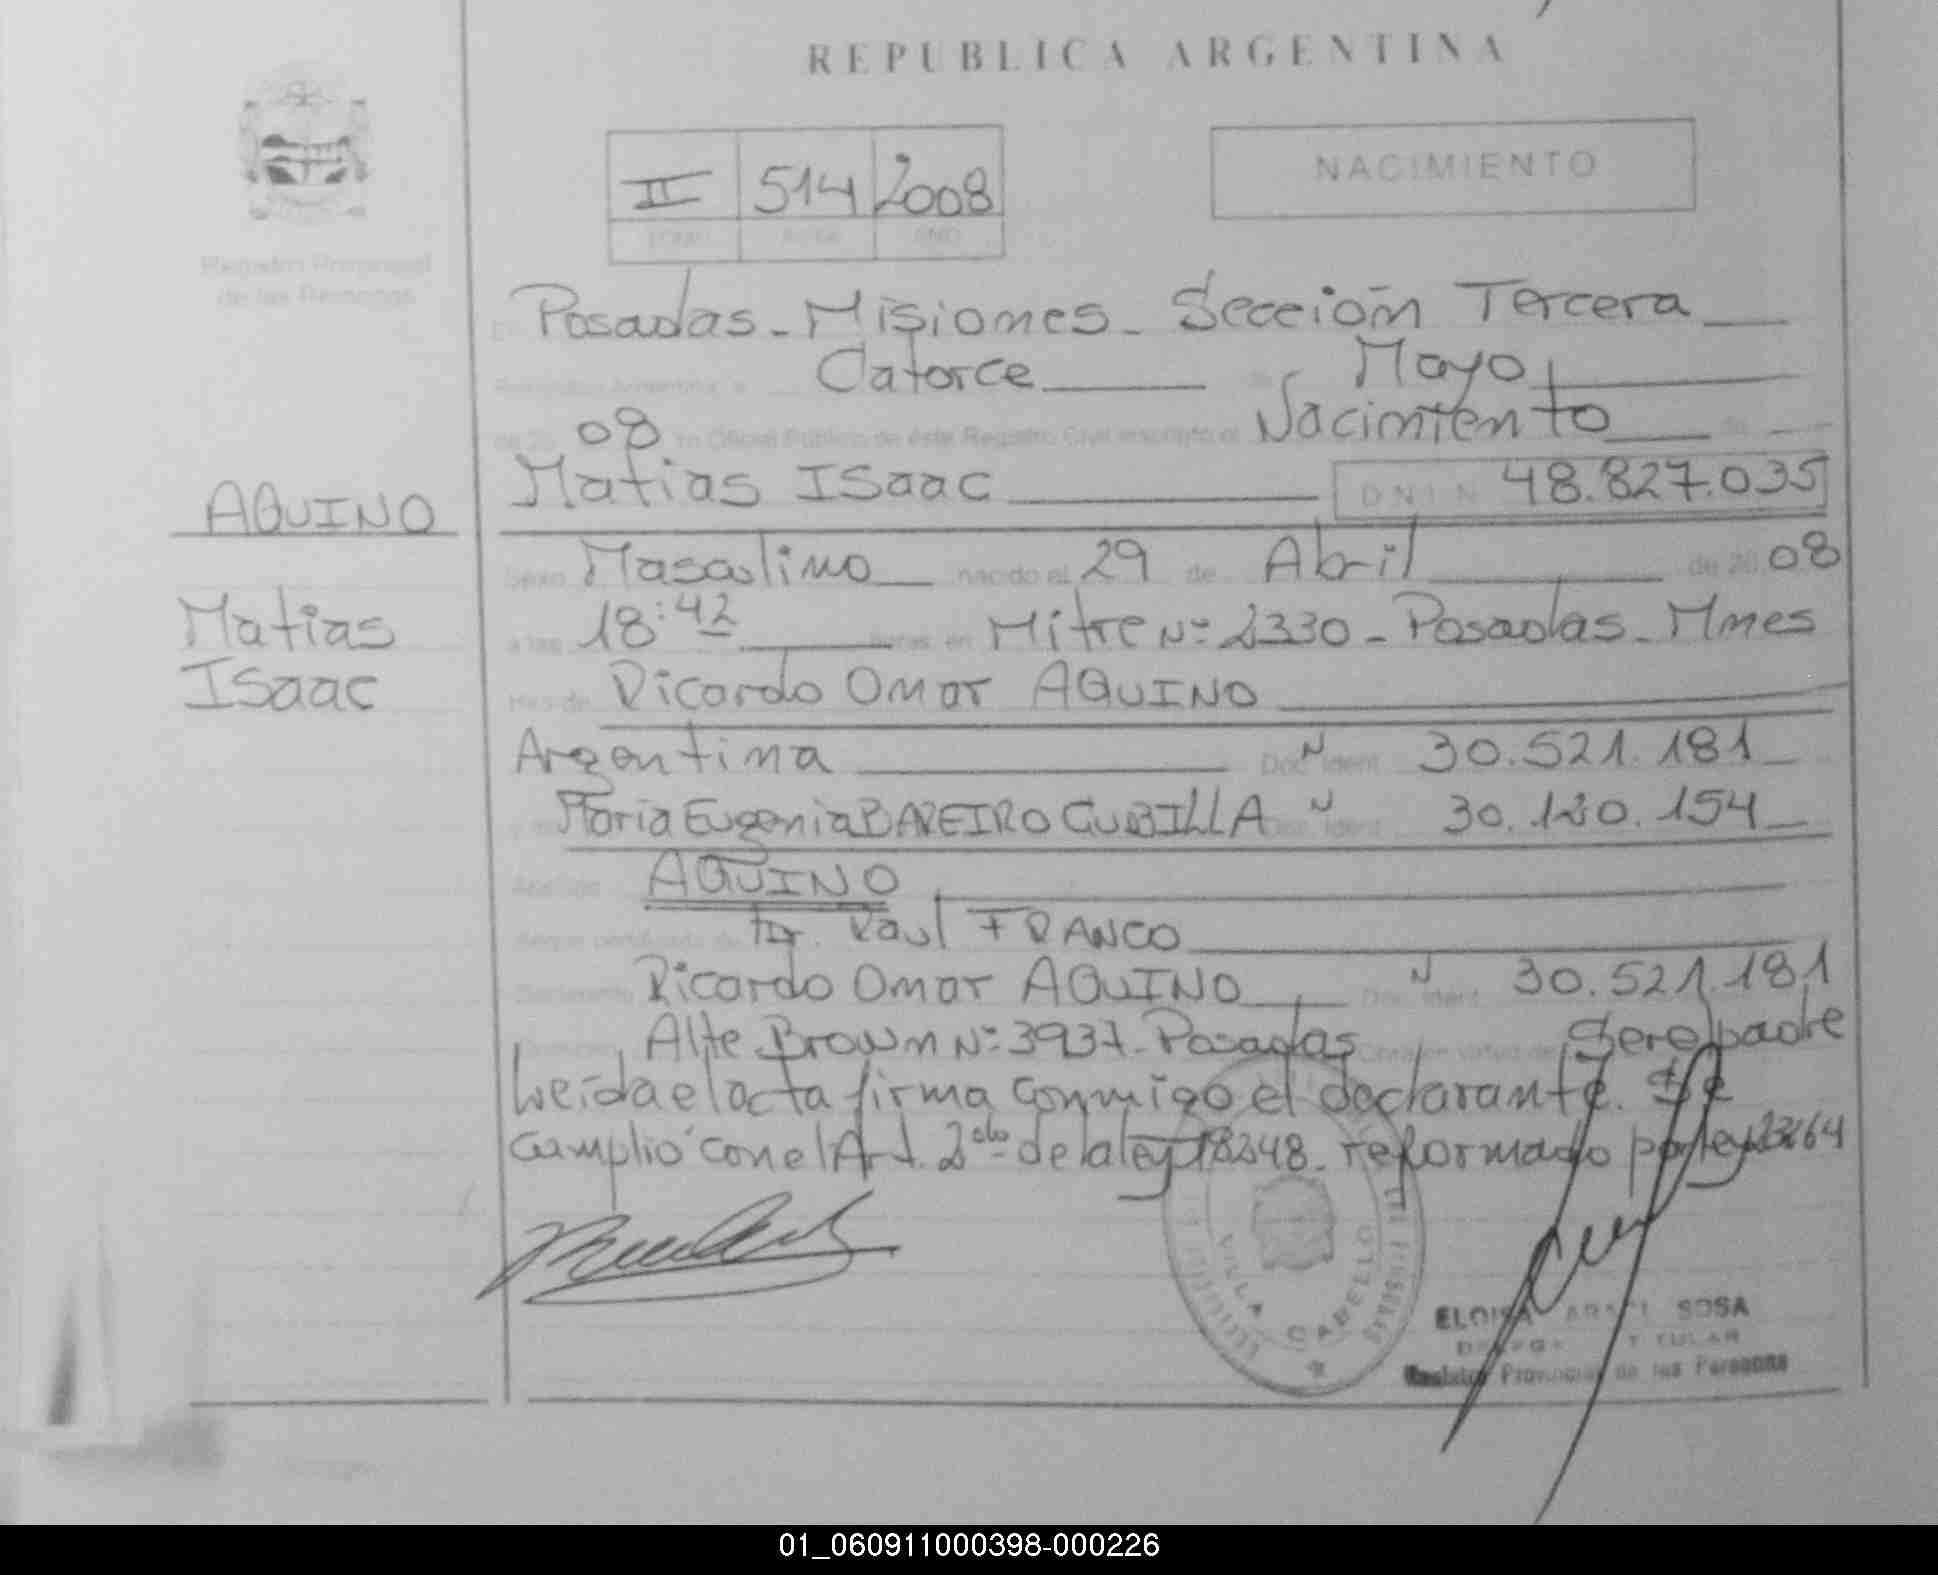 REPUBLICA ARGENTINA
NACIMIENTO
II 514 2008
TOMO ACTA AÑO
Registro Provincial
de las Personas
Posadas - Misiones - Sección Tercera
República Argentina, a Catorce de Mayo
de 20 08 yo Oficial Público de éste Registro Civil inscripto el Nacimiento de
Matias ISaac DNI N 48.827.035
AQUINO
Sexo Masculino nacido el 29 de Abril de 20 08
Matias
a las 18:42 horas en Mitre Nº 2330 - Posadas - Mnes
ISaac
Hijo de Ricardo Omar AQUINO
Argentina Doc. Ident. N 30.521.181
Maria Eugenia BAREIRO CUBILLA Doc. Ident. N 30.120.154
Apellido AQUINO
Según certificado de Dr. Raul FRANCO
Declarante Ricardo Omar AQUINO Doc. Ident. N 30.521.181
Domicilio Alte Brown Nº 3937 - Posadas Obra en virtud de Ser el padre
Leída el acta firma conmigo el declarante. Se
cumplió con el Art. 2do de la ley 18248 - reformado por ley 23264
VILLA CABELLO
ELOISA ARACI SOSA
DELEGADA TITULAR
Registro Provincial de las Personas
01_060911000398-000226